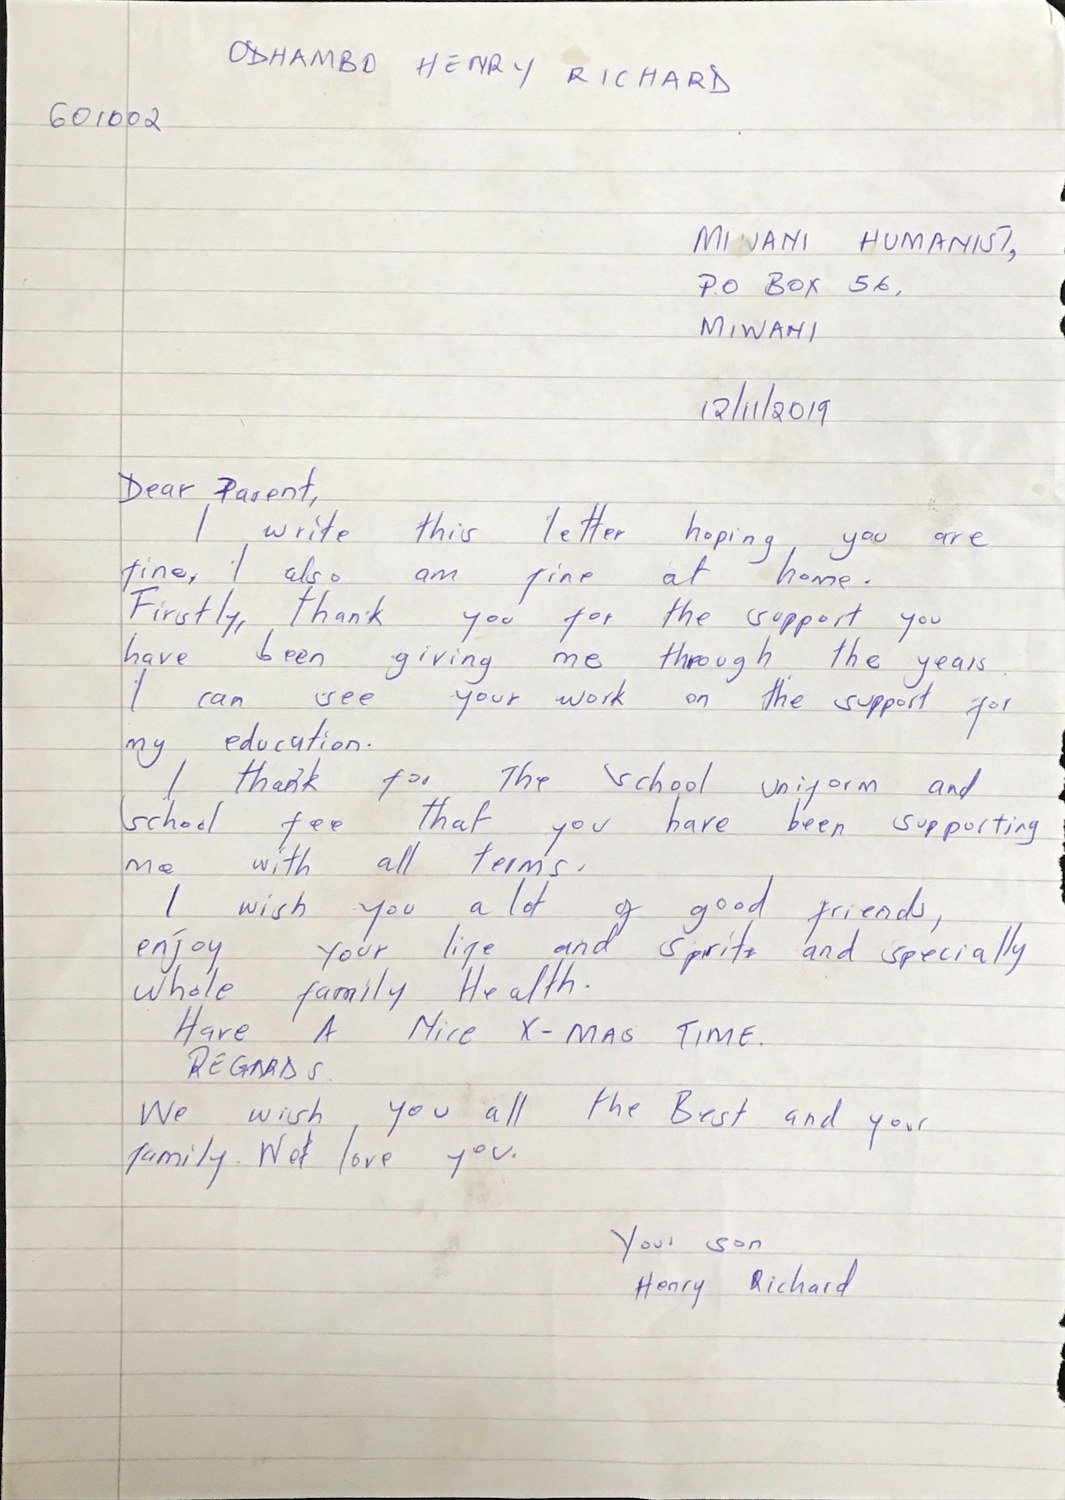 ODHAMBO HENRY RICHARD
601002
MIWANI HUMANIST,
P.O BOX 56,
MIWANI
12/11/2019
Dear Parent,
I write this letter hoping you are
fine, I also am fine at home.
Firstly, thank you for the support you
have been giving me through the years.
I can see your work on the support for
my education.
I thank for The school uniform and
school fee that you have been supporting
me with all terms.
I wish you a lot of good friends,
enjoy your life and and specially
whole family Health.
Have A Nice X-MAS TIME.
REGARDS.
We wish you all the Best and your
family. We love you.
Your son
Henry Richard